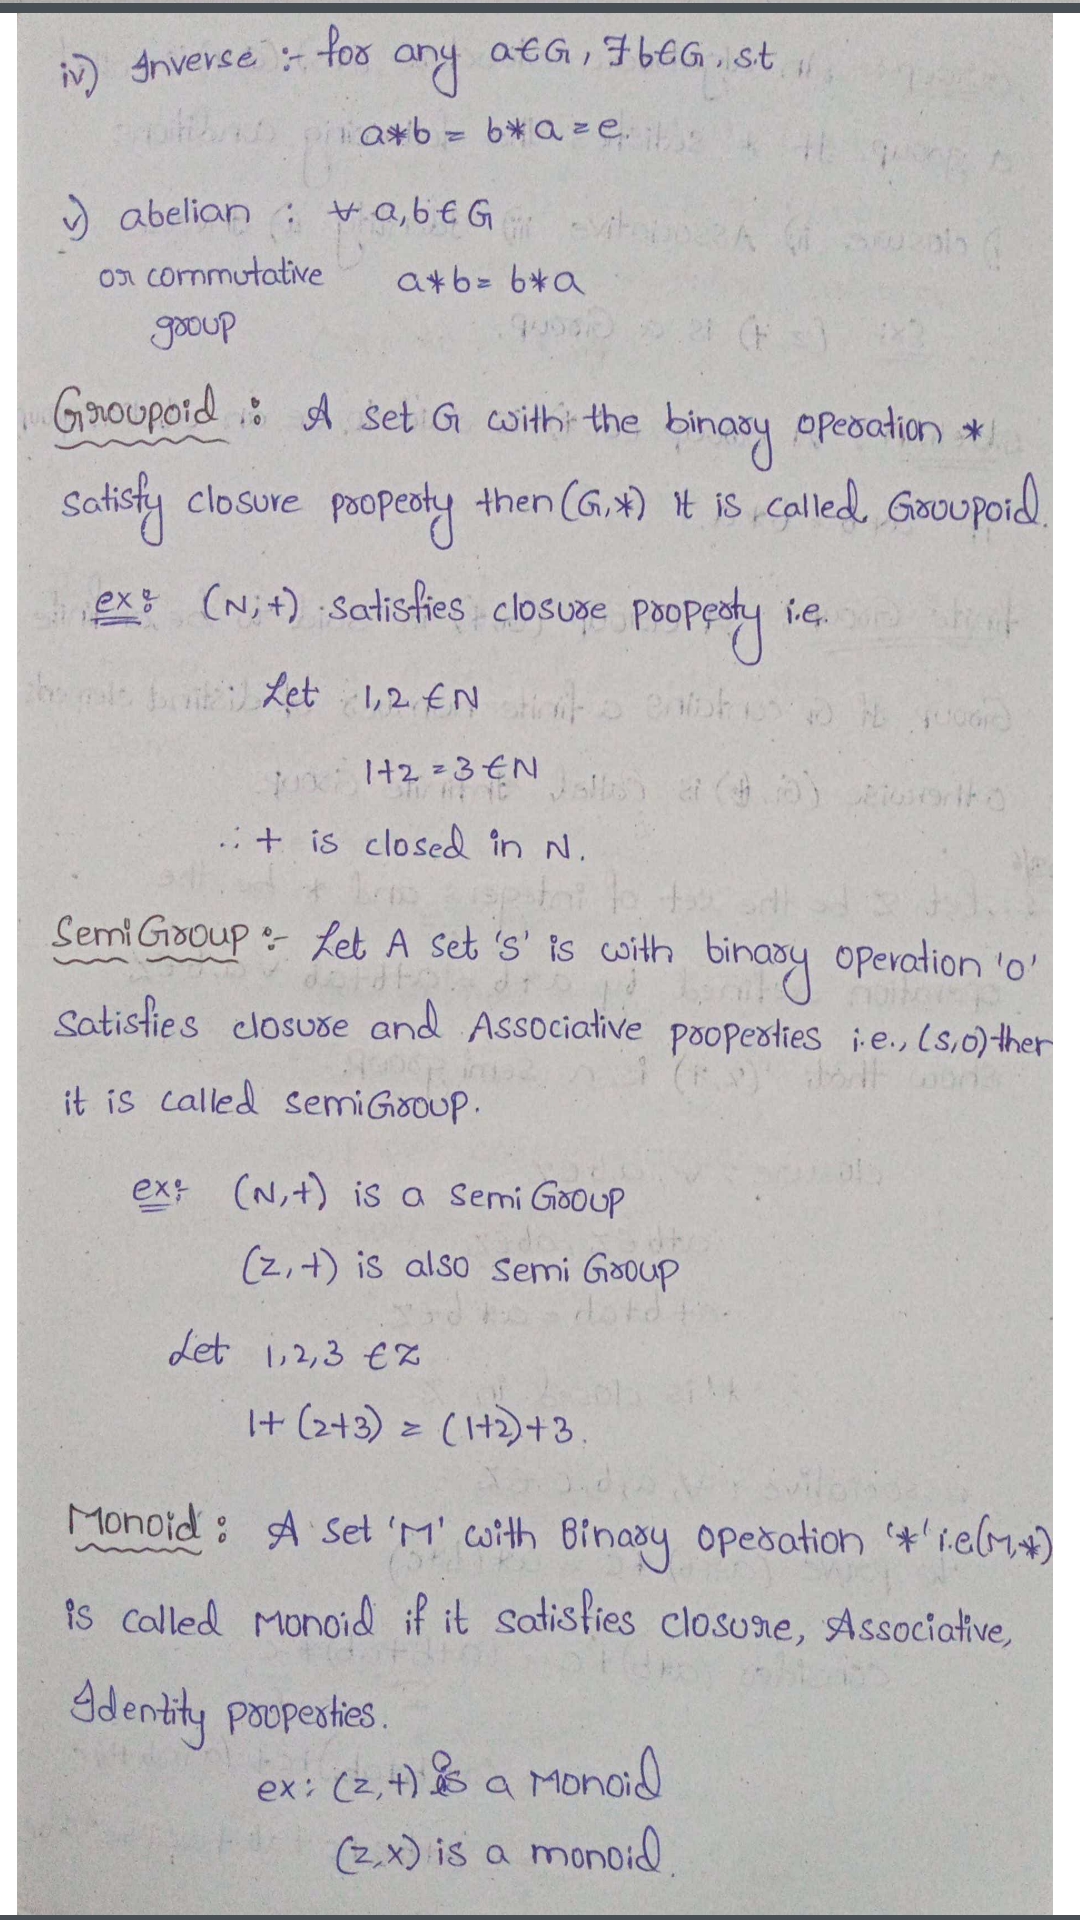 iv) Inverse :- for any a∈G, ∃b∈G, s.t
a*b = b*a = e.
v) abelian : ∀ a,b∈G
or commutative a*b = b*a
group
Groupoid : A set G with the binary operation *
satisfy closure property then (G,*) it is called Groupoid.
ex: (N,+) satisfies closure property i.e.
Let 1,2 ∈N
1+2 = 3 ∈N
∴ + is closed in N.
Semi Group :- Let A set 's' is with binary operation 'o'
satisfies closure and Associative properties i.e., (s,o) then
it is called semiGroup.
ex: (N,+) is a semi Group
(Z,+) is also semi Group
Let 1,2,3 ∈Z
1+(2+3) = (1+2)+3.
Monoid : A set 'M' with Binary operation '*' i.e (M,*)
is called Monoid if it satisfies closure, Associative,
Identity properties.
ex: (Z,+) is a Monoid
(Z,x) is a monoid.